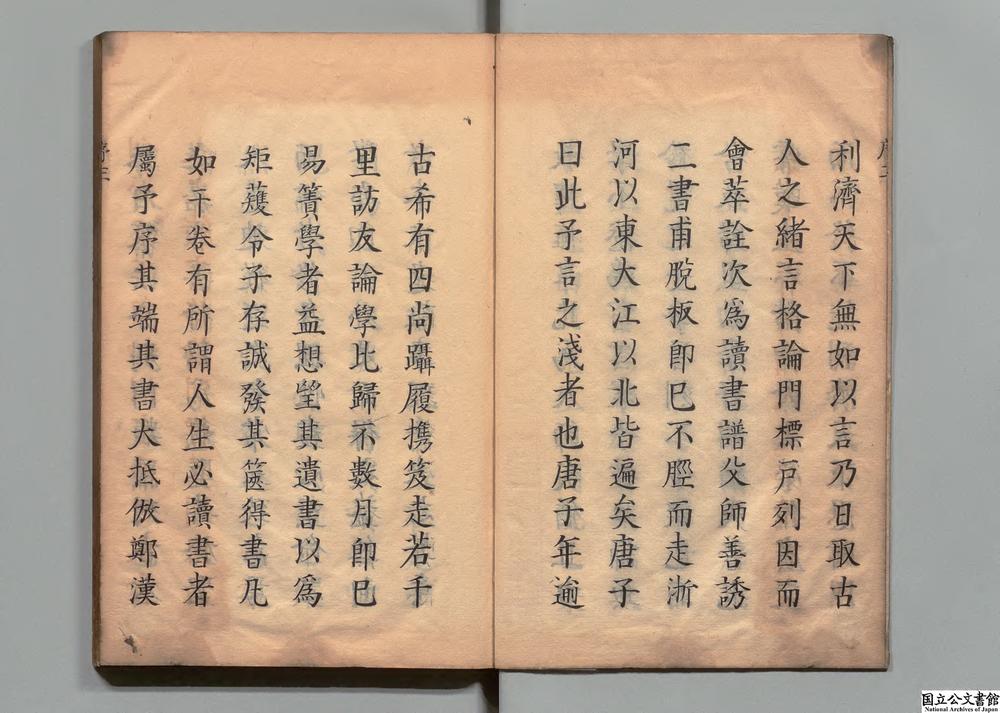 利濟天下無如以言乃日取古
人之緒言格論門標戸列因而
會萃詮次爲讀書譜父師善誘
二書甫脫板即巳不脛而走浙
河以東大江以北皆遍矣唐子
曰此予言之淺者也唐子年逾
古希有四尚躡履攜笈走若千
里訪友論學比歸不數月即巳
易簀學者益想望其遺書以爲
矩矱令子存誠發其篋得書凡
如干卷有所謂人生必讀書者
屬予序其端其書大抵倣鄭漢
序三
国立公文書館
National Archives of Japan